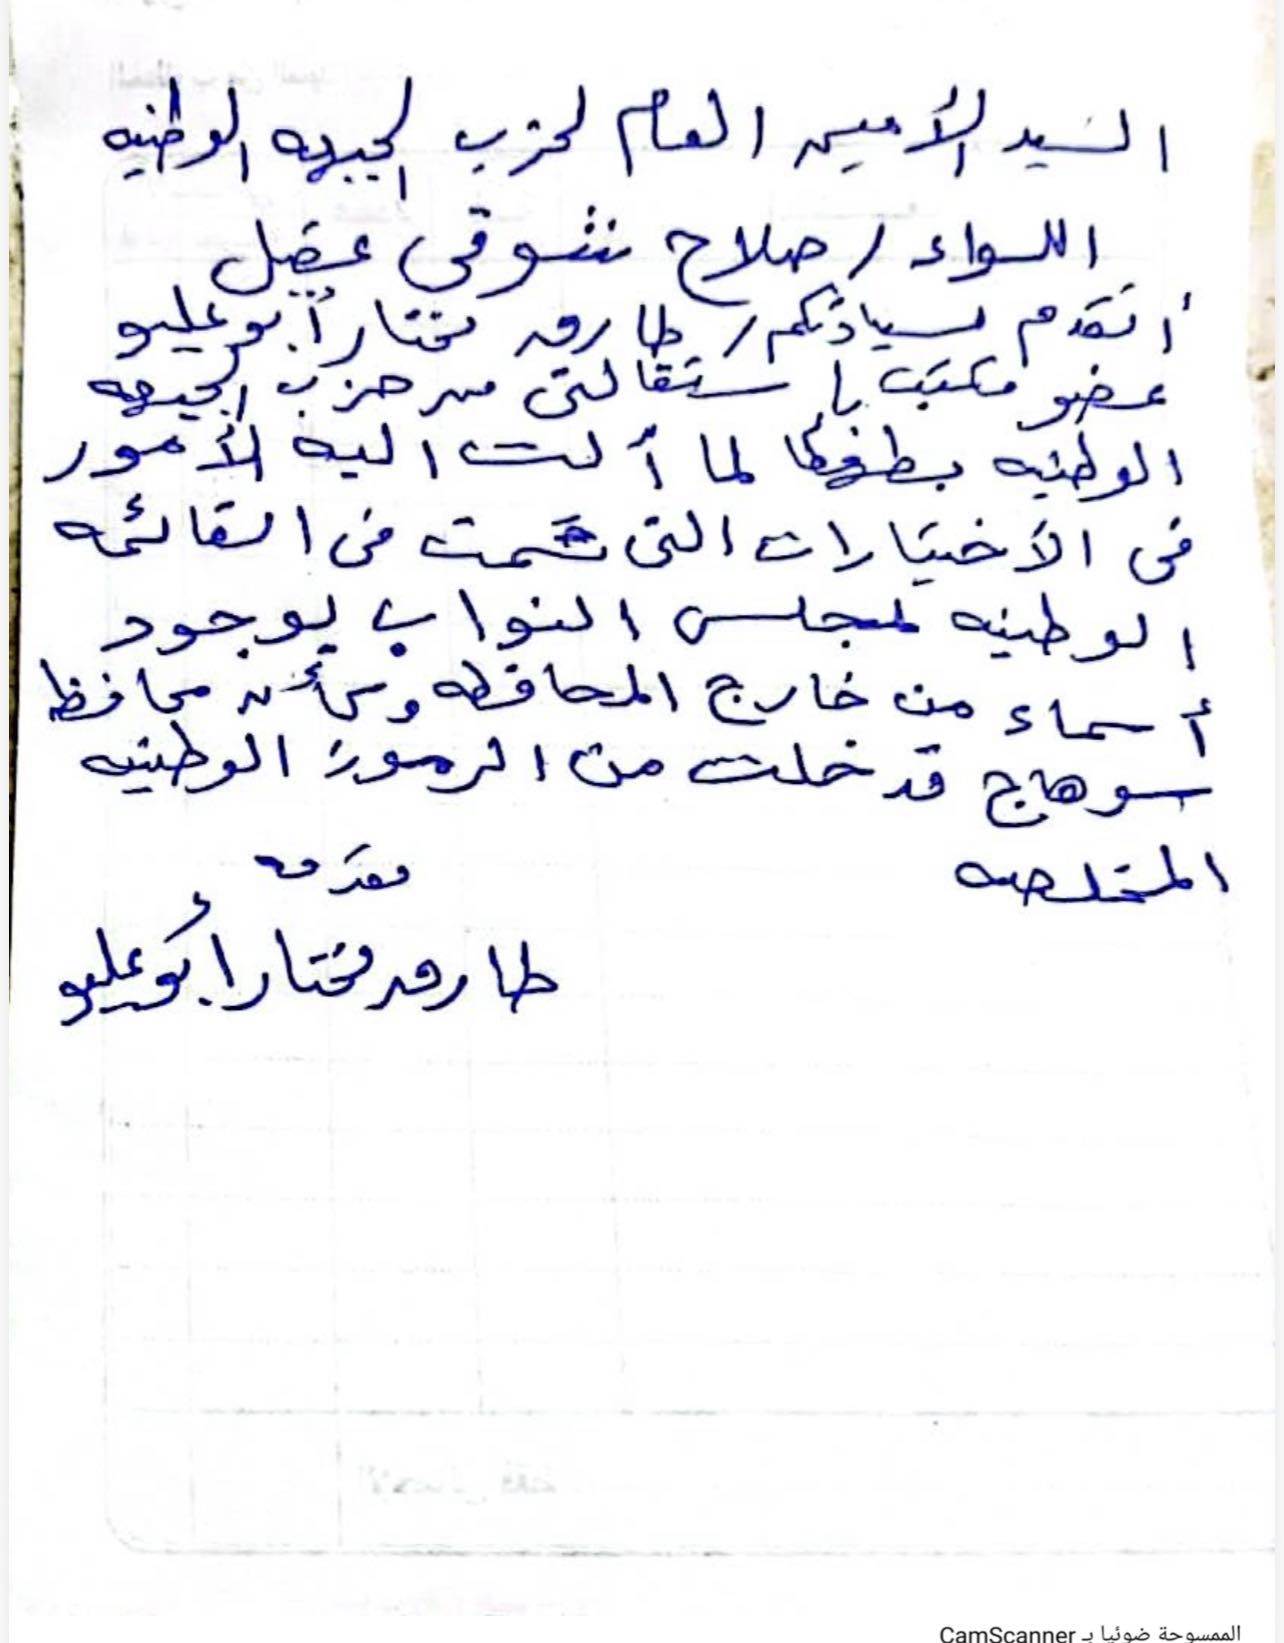 السيد الأمين العام لحزب الجبهه الوطنيه
اللواء / صلاح شوقى عقيل
أتقدم لسيادتكم / طارق مختار أبو عليو
عضو مكتب باستقالتى من حزب الجبهه
الوطنيه بطهطا لما ألت اليه الأمور
فى الأختيارات التى تمت فى القائمه
الوطنيه لمجلس النواب بوجود
أسماء من خارج المحافظه وكأن محافظة
سوهاج قد خلت من الرموز الوطنيه
المخلصه
مقدمه
طارق مختار أبو عليو
الممسوحة ضوئيا بـ CamScanner